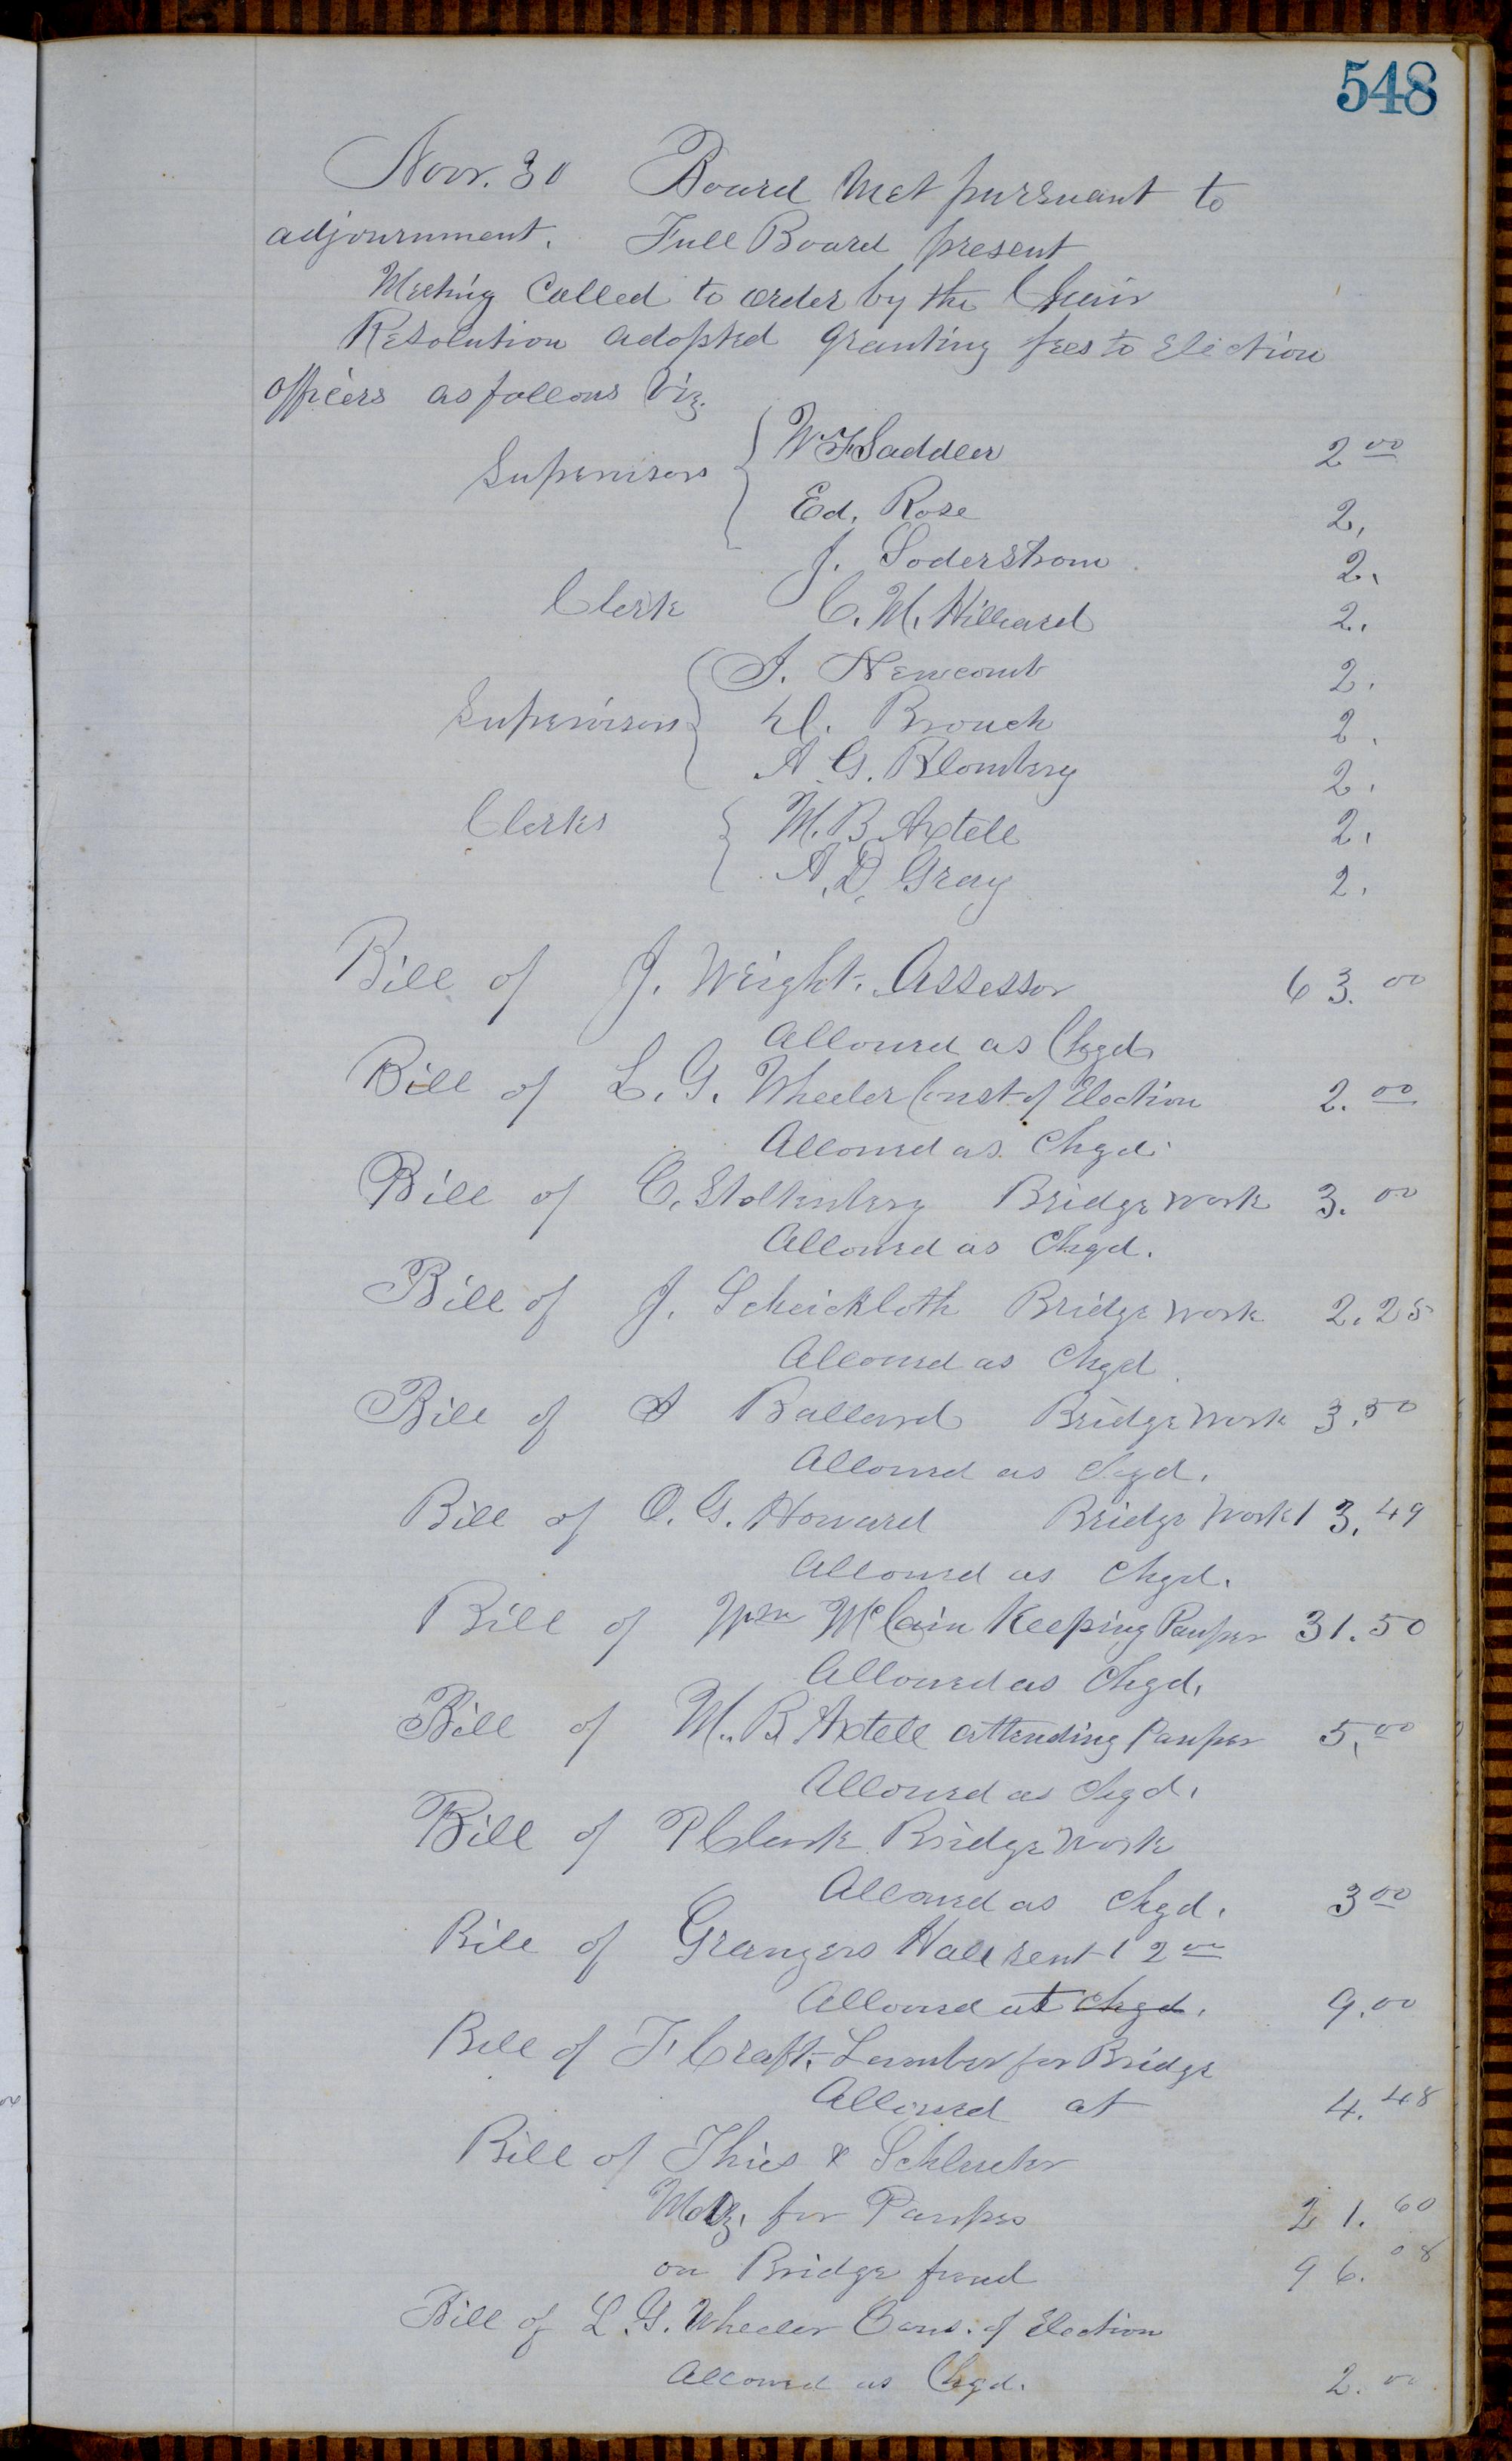 548
Novr. 30 Board Met pursuant to
adjournment. Full Board present
Meeting Called to order by the Chair
Resolution adopted granting fees to Election
officers as follows Viz.
Supervisors W F Saddler 2 00
Ed. Rose 2,
J. Soderstrom 2.
Clerk C. M. Hilliard 2.
Supervisors J. Newcomb 2.
H. Brouch 2.
A G. Blomberg 2.
Clerks M. B Axtell 2.
A. D. Gray 2.
Bill of J. Wright. Assessor 63.00
Allowed as Chgd
Bill of L. G. Wheeler Const of Election 2.00
Allowed as Chgd.
Bill of C. Stoltenberg Bridge work 3.00
Allowed as Chgd.
Bill of J. Scheickloth Bridge work 2.25
Allowed as Chgd
Bill of A Ballard Bridge work 3.50
Allowed as chgd.
Bill of O. G. Howard Bridge Work 13.49
Allowed as chgd.
Bill of Wm McCain Keeping Pauper 31.50
Allowed as Chgd.
Bill of M. B Axtell attending Pauper 5.00
Allowed as chgd.
Bill of P Clark Bridge work
Allowed as chgd. 3 00
Bill of Grangers Hall rent 12 00
Allowed at chgd. 9.00
Bill of F Craft. Lumber for Bridge
Allowed at 4.48
Bill of Thies &
for Paupers 21.60
on Bridge fund 96.08
Bill of L. G. Wheeler Cons. of Election
Allowed as Chgd. 2.00